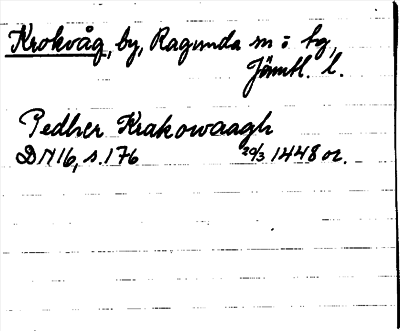 Krokvåg, by, Ragunda sn o tg,
Jämtl. l.
Pedher Krakowaagh
DN 16, s. 176 20/3 1448 or.